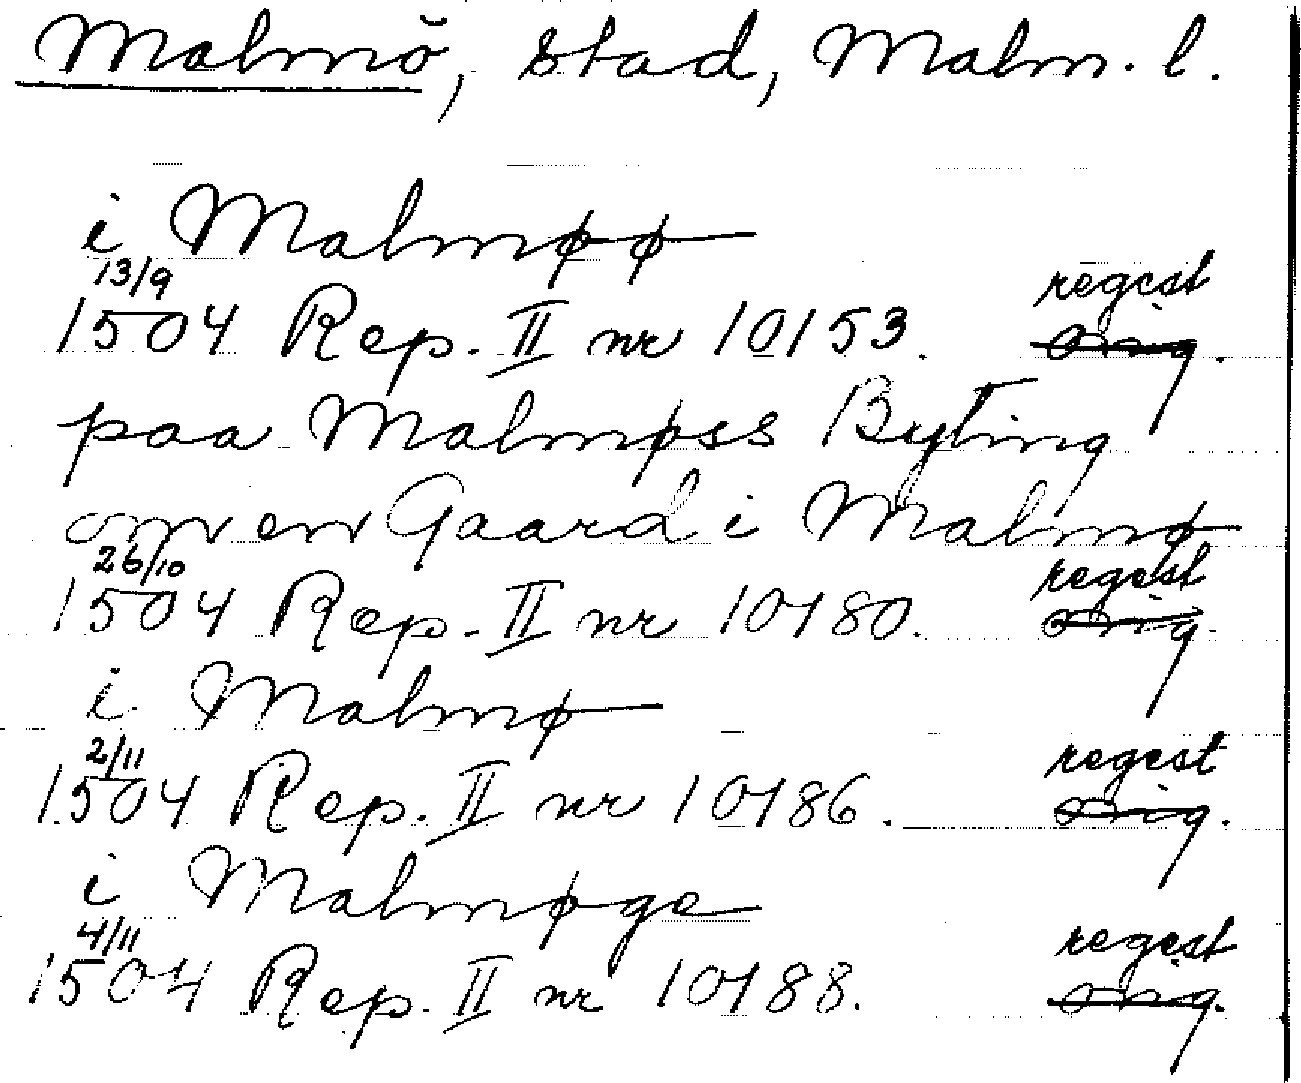 Malmö, stad, Malm. l.
i Malmøø
13/9 regest
1504 Rep. II nr 10153. orig.
paa Malmøss Byting
om en Gaard i Malmø
26/10 regest
1504 Rep. II nr 10180. orig.
i Malmø
2/11 regest
1504 Rep. II nr 10186. orig.
i Malmøge
4/11 regest
1504 Rep. II nr 10188. orig.